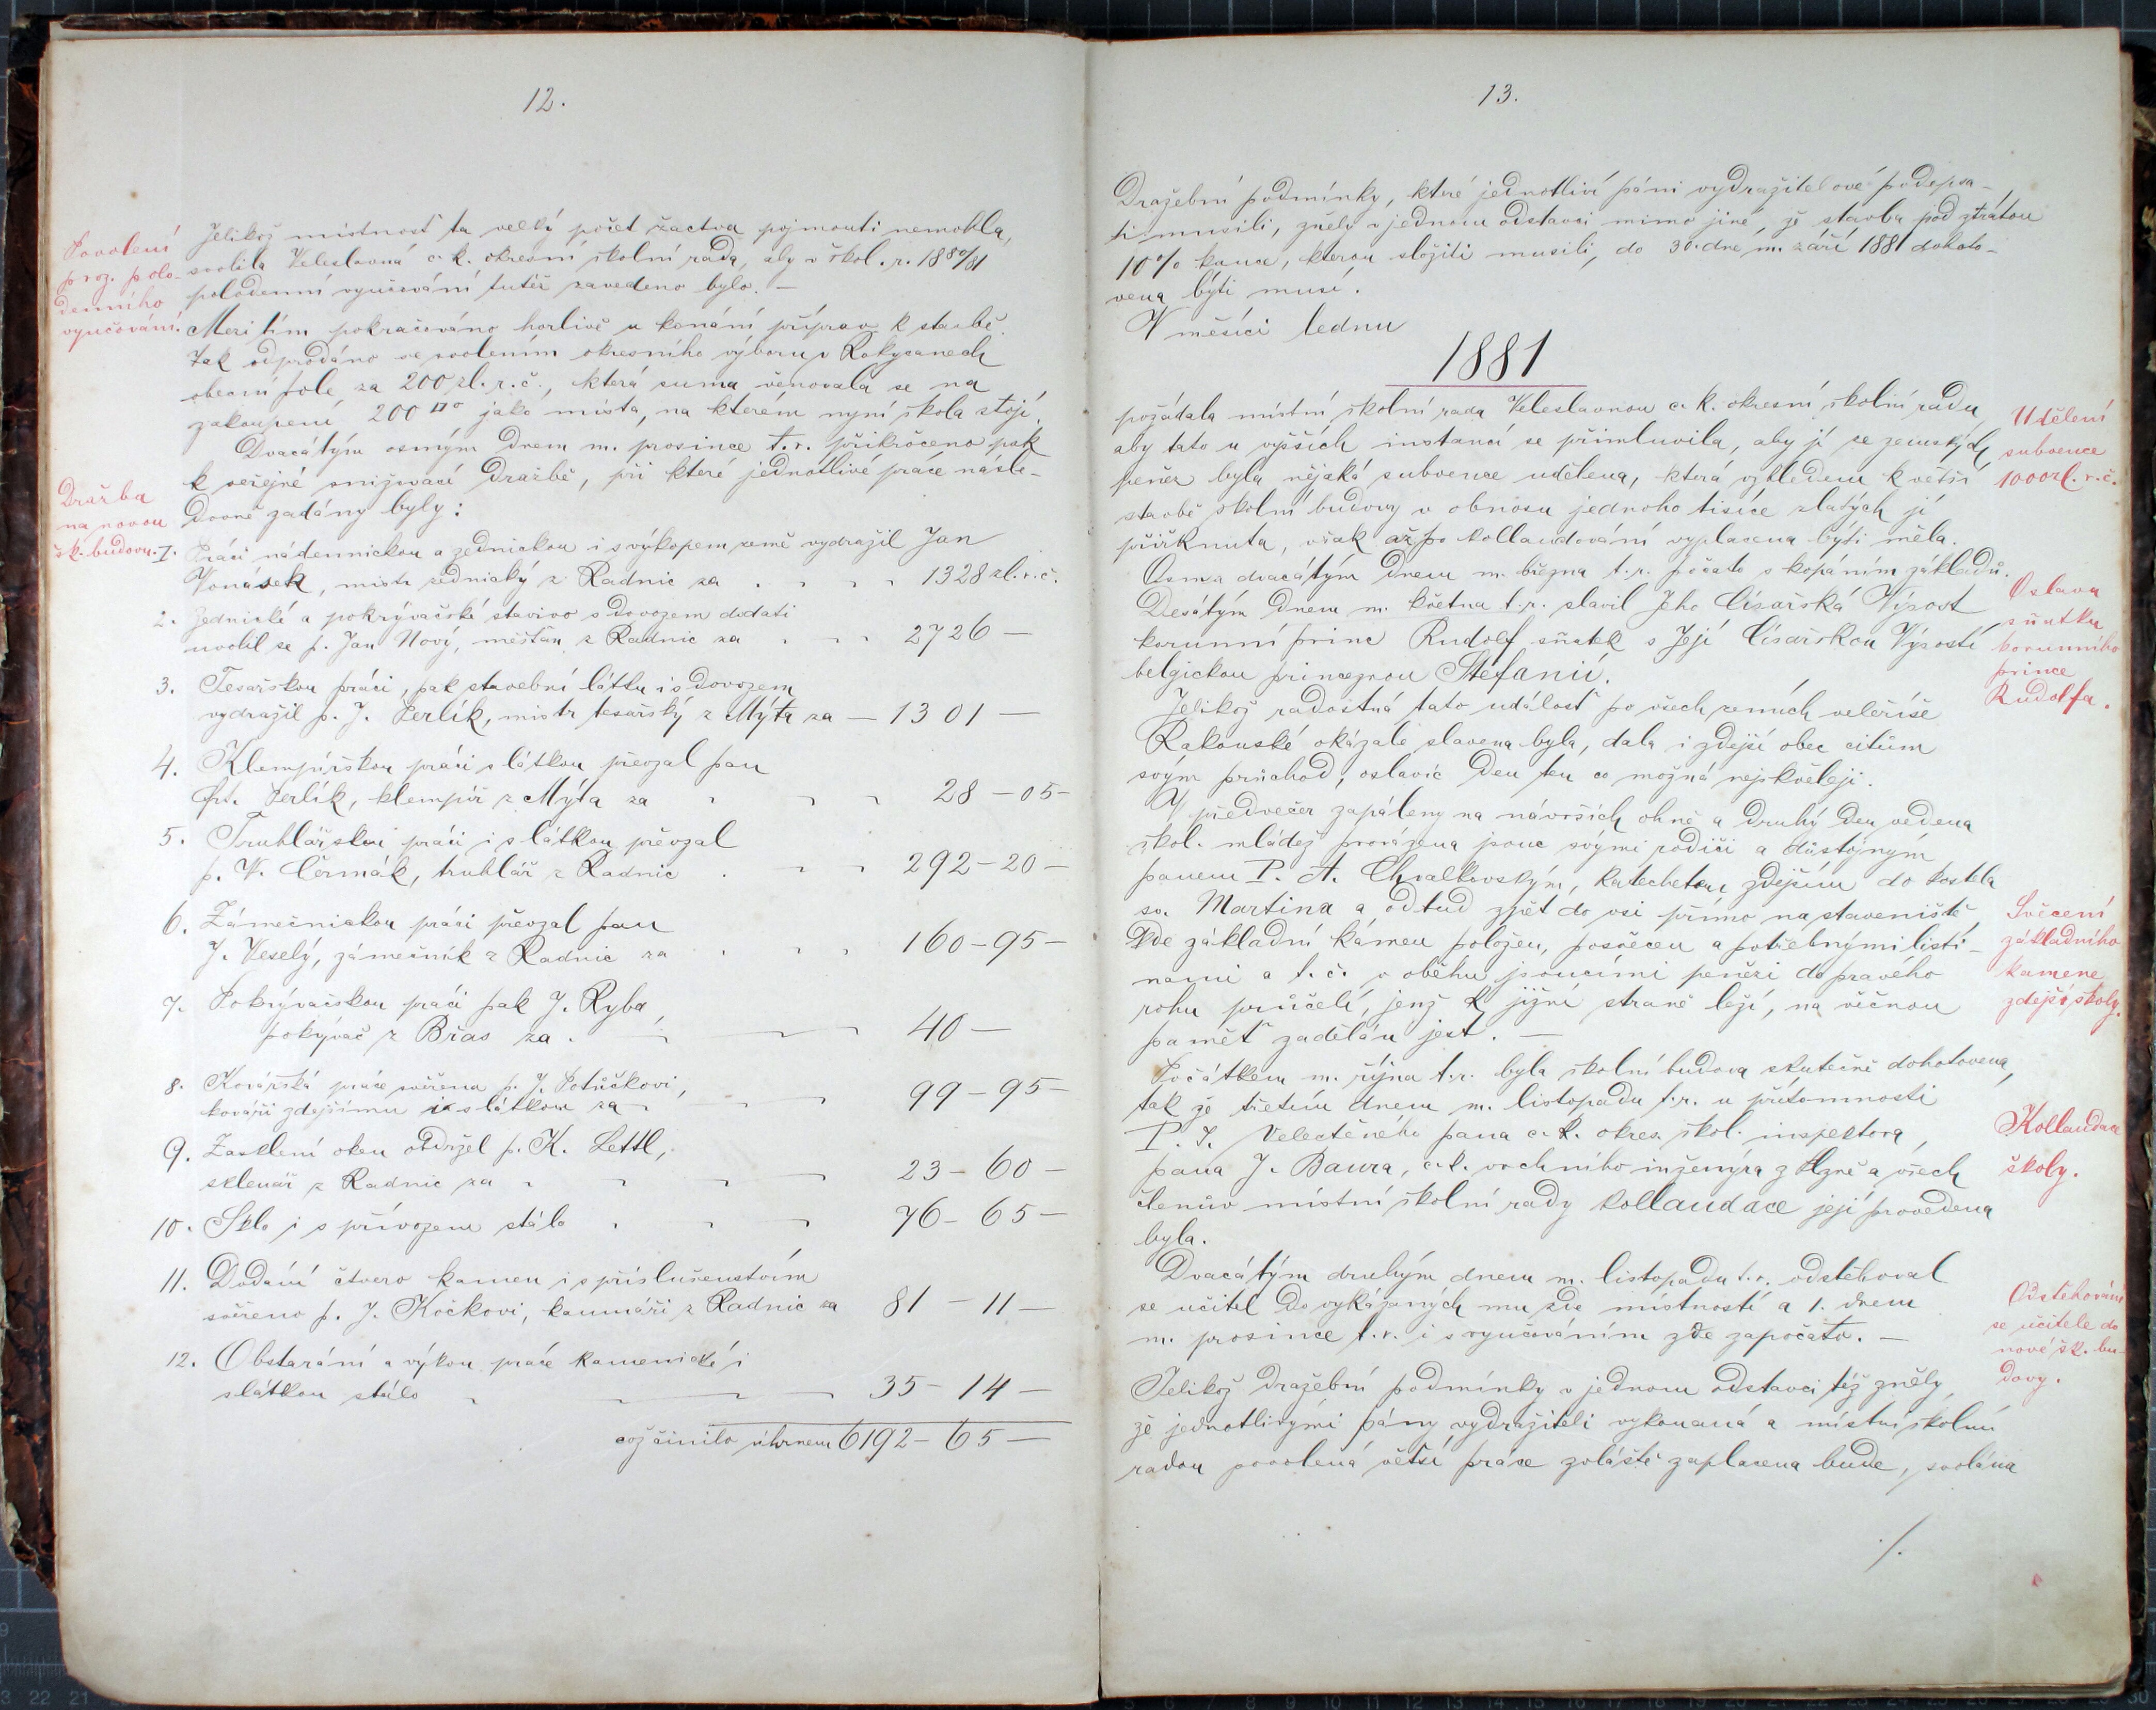 12.
Povolení
proz. polo-
denního
vyučování.
Jelikož místnosť ta velký počet žactva pojmouti nemohla,
svolila Veleslavná c. k. okresní školní rada, aby v škol. r. 1880/81
polodenní vyučování tutéž zavedeno bylo. —
Mezi tím pokračováno horlivě u konání příprav k stavbě.
Tak odprodáno se svolením okresního výboru v Rokycanech
obecní pole za 200 zl. r. č., která suma věnovala se na
zakoupení 200 □° jako místa, na kterém nyní škola stojí.
Dvacátým osmým dnem m. prosince t. r. přikročeno pak
k veřejné snižovací dražbě, při které jednotlivé práce násle-
dovně zadány byly:
Dražba
na novou
šk. budovu.
I. Práci nádennickou a zednickou i s výkopem země vydražil Jan
Vonásek, mistr zednický z Radnic za . . . . 1328 zl. r. č.
2. Zednické a pokrývačské stavivo s dovozem dodati
uvolil se p. Jan Nový, měšťan z Radnic za . . . 2726 —
3. Tesařskou práci, pak stavební látku i s dovozem
vydražil p. J. Perlík, mistr tesařský z Mýta za — 1301 —
4. Klempířskou práci s látkou převzal pan
Ant. Perlík, klempíř z Mýta za 28 — 05 —
5. Truhlářskou práci i s látkou převzal
p. V. Čermák, truhlář z Radnic . . . 292 — 20 —
6. Zámečnickou práci převzal pan
J. Veselý, zámečník z Radnic za . . . 160 — 95 —
7. Pokrývačskou práci pak J. Ryba,
pokývač z Břas za . 40 —
8. Kovářská práce svěřena p. J. Potůčkovi,
kováři zdejšímu i s látkou za 99 — 95 —
9. Zasklení oken obdržel p. K. Lettl,
sklenář z Radnic za 23 — 60 —
10. Sklo i s přívozem stálo 76 — 65 —
11. Dodání čtvero kamen i s příslušenstvím
svěřeno p. J. Kočkovi, kamnáři z Radnic za 81 — 11 —
12. Obstarání a výkon práce kamenické i
s látkou stálo 35 — 14 —
což činilo úhrnem 6192 — 65 —
13.
Dražební podmínky, které jednotliví páni vydražitelové podepsa-
ti musili, zněly v jednom odstavci mimo jiné, že stavba pod ztrátou
10% kauce, kterou složiti musili, do 30. dne m. září 1881 dohoto-
vena býti musí.
V měsíci lednu
1881
požádala místní školní rada Veleslavnou c. k. okresní školní radu,
aby tato u vyšších instancí se přimluvila, aby jí ze zemských
peněz byla nějaká subvence udělena, která vzhledem k větší
stavbě školní budovy v obnosu jednoho tisíce zlatých jí
přiřknuta, však až po kollaudování vyplacena býti měla.
Udělení
subvence
1000 zl. r. č.
Osm a dvacátým dnem m. března t. r. počato s kopáním základů.
Desátým dnem m. května t. r. slavil Jeho Císařská Výsost
korunní princ Rudolf sňatek s Její Císařskou Výsostí
belgickou princeznou Stefanií.
Oslava
sňatku
korunního
prince
Rudolfa.
Jelikož radostná tato událosť po všech zemích veleříše
Rakouské okázale slavena byla, dala i zdejší obec citům
svým průchod, oslavíc den ten co možná nejskvěleji.
V předvečer zapáleny na návrších ohně a druhý den vedena
škol. mládež provázena jsouc svými rodiči a důstojným
panem P. A. Chvalkovským, katechetou zdejším do kostela
sv. Martina a odtud zpět do vsi přímo na staveniště,
kde základní kámen položen, posvěcen a potřebnými listi-
nami a t. č. v oběhu jsoucími penězi do pravého
rohu průčelí, jenž k jižní straně leží, na věčnou
paměť zadělán jest. —
Svěcení
základního
kamene
zdejší školy.
Počátkem m. října t. r. byla školní budova skutečně dohotovena,
tak že třetím dnem m. listopadu t. r. u přítomnosti
P. T. Velectěného pana c. k. okres. škol. inspektora,
pana J. Baura, c. k. vrchního inženýra z Plzně a všech
členův místní školní rady kollaudace její provedena
byla.
Kollaudace
školy.
Dvacátým druhým dnem m. listopadu t. r. odstěhoval
se učitel do vykázaných mu zde místností a 1. dnem
m. prosince t. r. i s vyučováním zde započato. —
Odstěhování
se učitele do
nové šk. bu-
dovy.
Jelikož dražební podmínky v jednom odstavci též zněly,
že jednotlivými pány vydražiteli vykonaná a místní školní
radou povolená větší práce zvláště zaplacena bude, svolána
./.